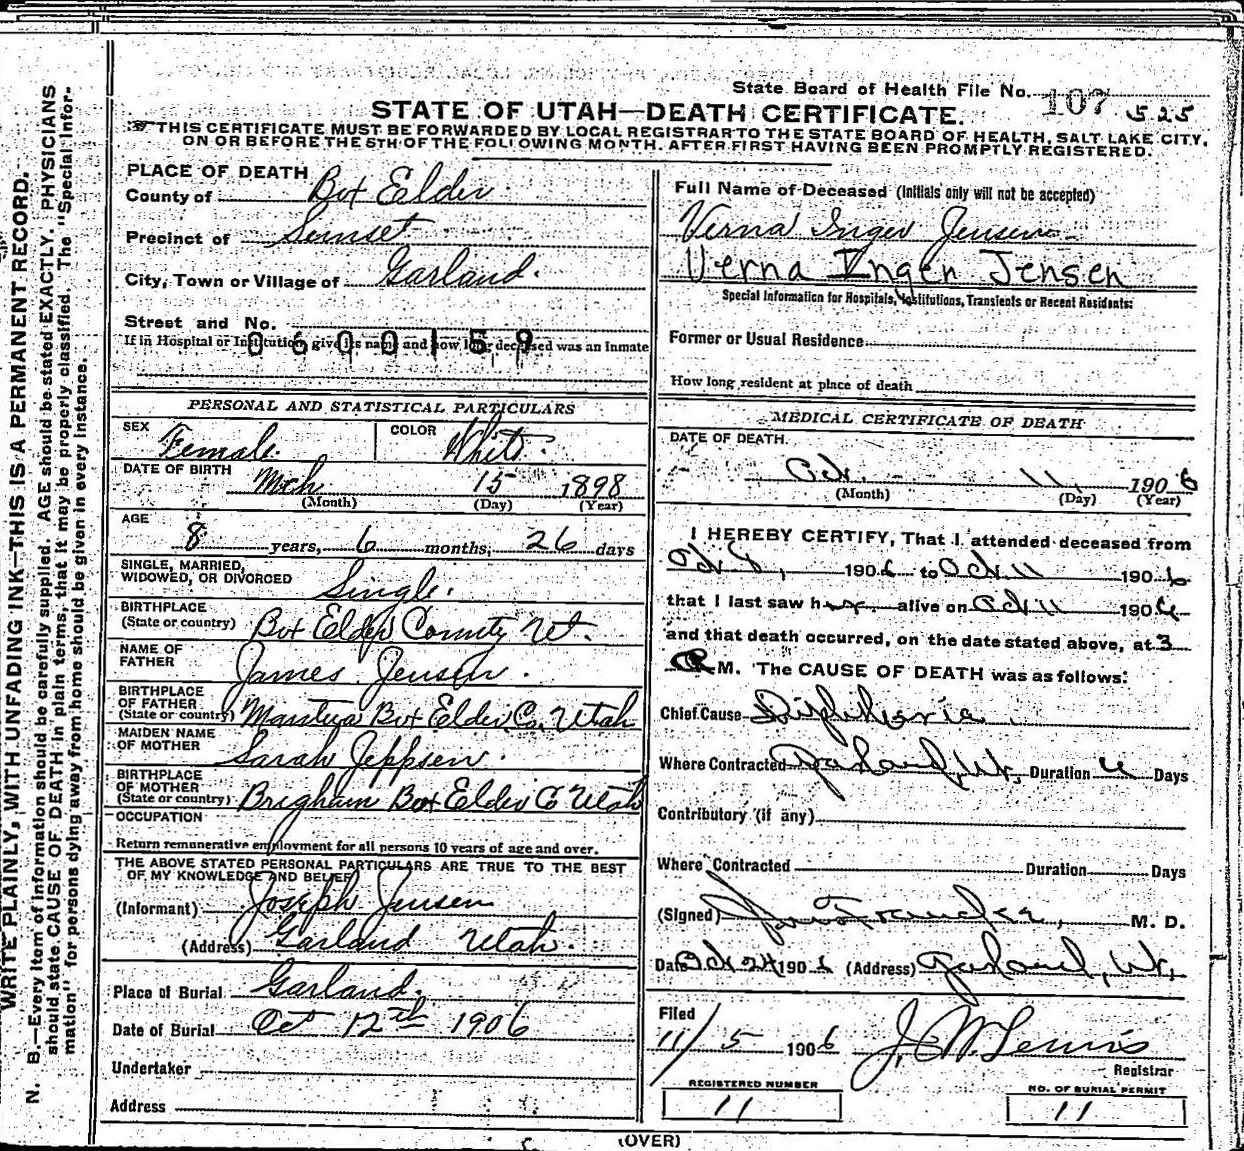 State Board of Health File No. 107 525
STATE OF UTAH—DEATH CERTIFICATE.
THIS CERTIFICATE MUST BE FORWARDED BY LOCAL REGISTRAR TO THE STATE BOARD OF HEALTH, SALT LAKE CITY,
ON OR BEFORE THE 5TH OF THE FOLLOWING MONTH. AFTER FIRST HAVING BEEN PROMPTLY REGISTERED.
WRITE PLAINLY, WITH UNFADING INK—THIS IS A PERMANENT RECORD.
N. B.—Every item of information should be carefully supplied. AGE should be stated EXACTLY. PHYSICIANS
should state CAUSE OF DEATH in plain terms, that it may be properly classified. The "Special Infor-
mation" for persons dying away from home should be given in every instance.
PLACE OF DEATH
County of Box Elder
Precinct of Sunset
City, Town or Village of Garland.
Street and No.
If in Hospital or Institution, give its name and how long deceased was an Inmate
0600159
PERSONAL AND STATISTICAL PARTICULARS
SEX Female. COLOR White.
DATE OF BIRTH Mch 15 1898
(Month) (Day) (Year)
AGE
8 years, 6 months, 26 days
SINGLE, MARRIED,
WIDOWED, OR DIVORCED Single.
BIRTHPLACE
(State or country) Box Elder County Ut.
NAME OF
FATHER James Jensen.
BIRTHPLACE
OF FATHER
(State or country) Mantua Box Elder, Co. Utah
MAIDEN NAME
OF MOTHER Sarah Jeppsen.
BIRTHPLACE
OF MOTHER
(State or country) Brigham Box Elder Co Utah
OCCUPATION
Return remunerative employment for all persons 10 years of age and over.
THE ABOVE STATED PERSONAL PARTICULARS ARE TRUE TO THE BEST
OF MY KNOWLEDGE AND BELIEF
(Informant) Joseph Jensen
(Address) Garland Utah.
Place of Burial Garland.
Date of Burial Oct 12th 1906
Undertaker
Address
Full Name of Deceased (Initials only will not be accepted)
Verna Inger Jensen
Verna Ingen Jensen
Special Information for Hospitals, Institutions, Transients or Recent Residents:
Former or Usual Residence
How long resident at place of death
MEDICAL CERTIFICATE OF DEATH
DATE OF DEATH.
Oct. 11, 1906
(Month) (Day) (Year)
I HEREBY CERTIFY, That I attended deceased from
Oct 1906 to Oct 11 1906
that I last saw her alive on Oct 11 1906
and that death occurred, on the date stated above, at 3
M. The CAUSE OF DEATH was as follows:
Chief Cause Diphtheria
Where Contracted Garland, Ut. Duration 4 Days
Contributory (if any)
Where Contracted Duration Days
(Signed) M. D.
Date Oct 24 1906 (Address) Garland, Ut.
Filed
11/5 1906 J. W. Lewis
Registrar
REGISTERED NUMBER
11
NO. OF BURIAL PERMIT
11
(OVER)